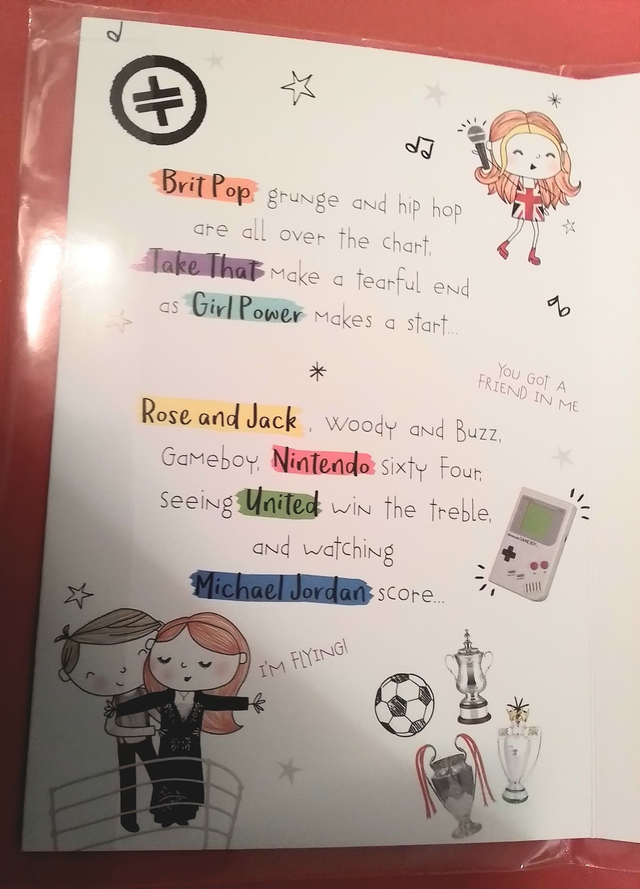 Brit Pop grunge and hip hop
are all over the chart,
Take That make a tearful end
as Girl Power makes a start...
YOU GOT A
FRIEND IN ME
Rose and Jack, Woody and Buzz,
Gameboy, Nintendo sixty Four,
seeing United win the treble,
and watching
Michael Jordan score...
I'M FLYING!